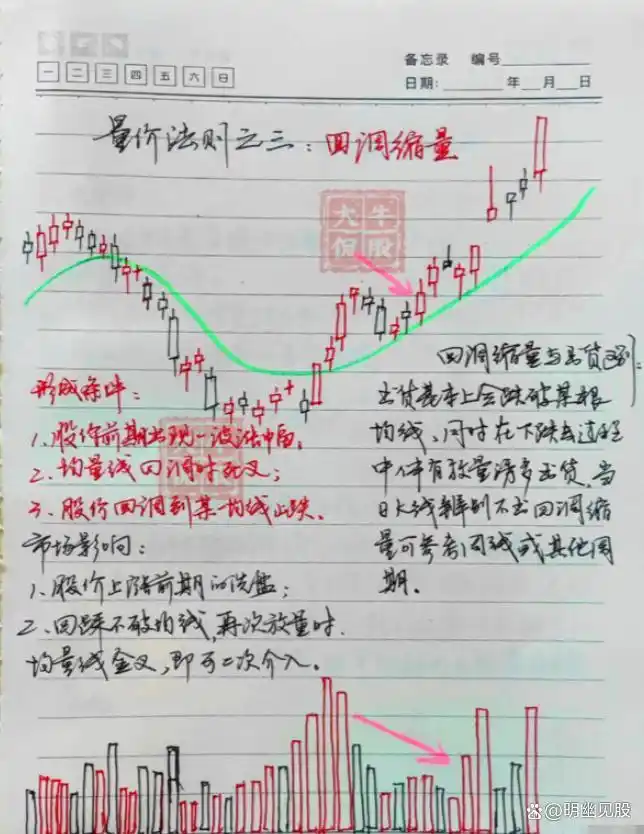 备忘录 编号
一 二 三 四 五 六 日
日期: 年 月 日
量价法则之三：回调缩量
大牛
侃股
回调缩量与出货区别：
出货基本上会跌破某根
均线、同时在下跌过程
中伴有放量诱多出货。当
日K线辨别不出回调缩
量可参考周线或其他周
期。
形成条件：
1、股价前期出现一波涨幅。
2、均量线回调时死叉；
3、股价回调到某一均线止跌。
市场影响：
1、股价上涨前期的洗盘；
2、回踩不破均线,再次放量时.
均量线金叉,即可二次介入。
@明幽见股